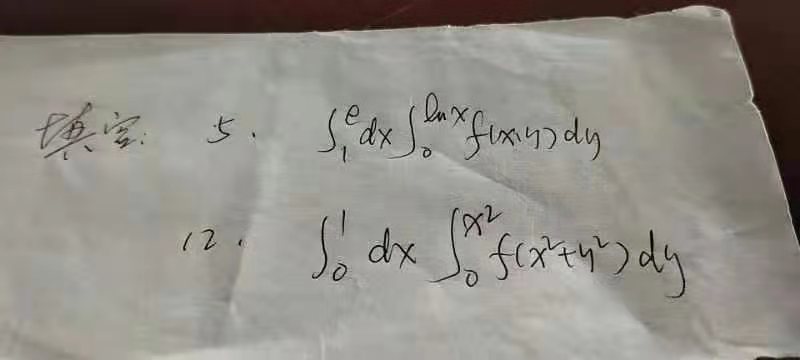 填空: 5. ∫₁ᵉ dx ∫₀^{ln x} f(x,y) dy
12. ∫₀¹ dx ∫₀^{x²} f(x²+y²) dy